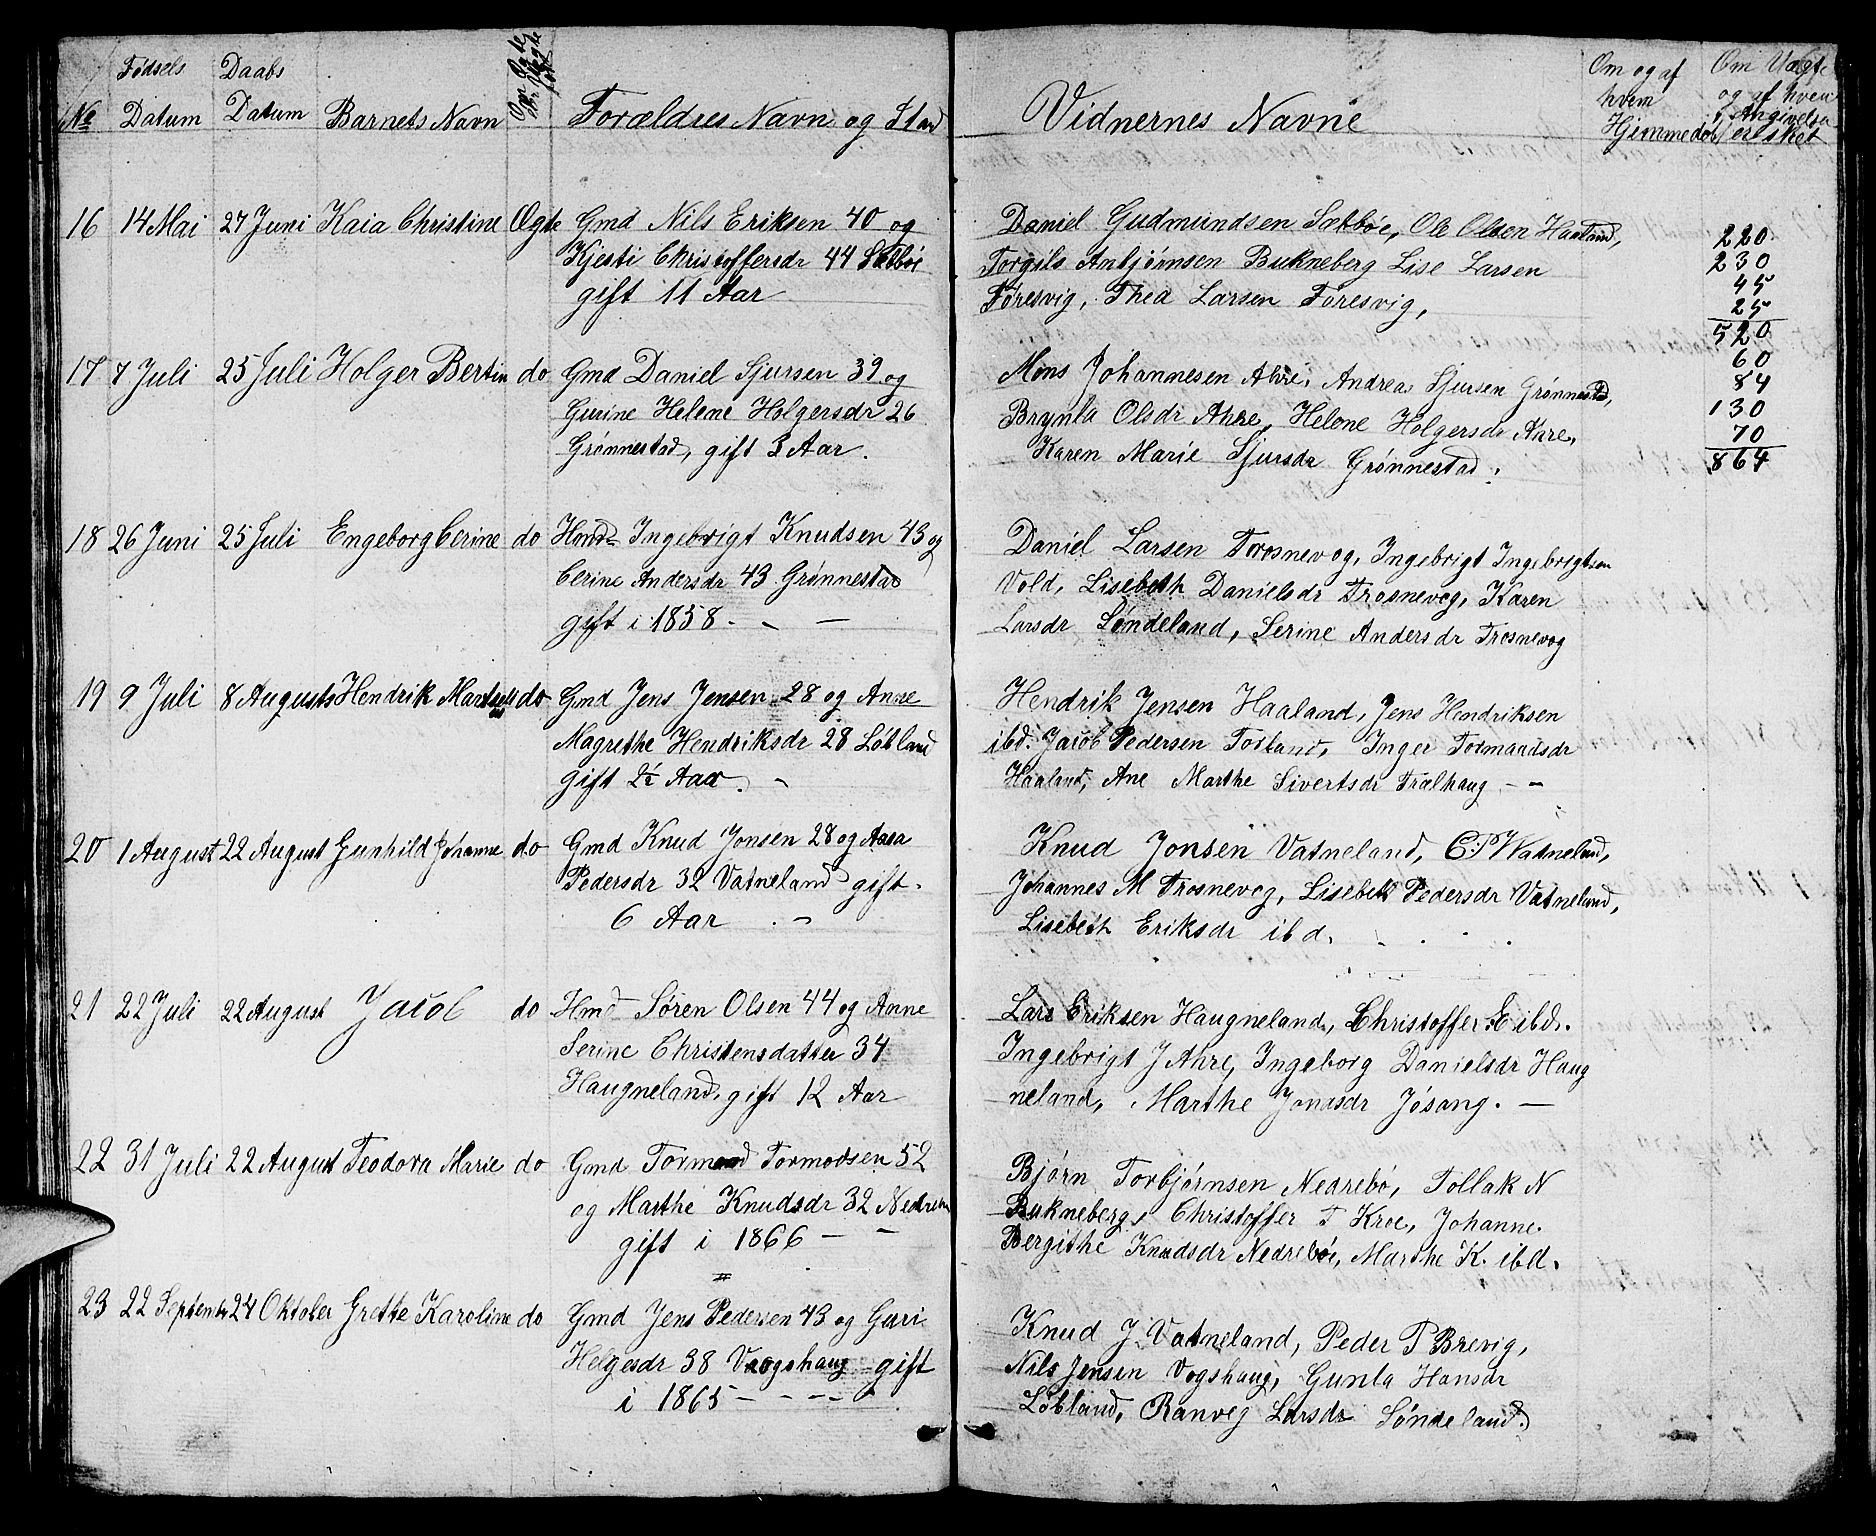 Fødsels Daabs
No Datum Datum Barnets Navn Forældres Navn og Stand
16 14 Mai 27 Juni Kaia Christine Ægte Gmd Nils Eriksen 40 og
Kjesti Christoffersdr 44 Sæbbøe
gift 11 Aar
17 7 Juli 25 Juli Holger Bertin do Gmd Daniel Sjursen 39 og
Gurine Helene Holgersdr 26
Grønnestad, gift 3 Aar.
18 26 Juni 25 Juli Engeborg Cerine do Hmd Ingebrigt Knudsen 43 og
Cerine Andersdr 43 Grønnestad
gift i 1858 - - -
19 9 Juli 8 Augusts Hendrik do Gmd Jens Jensen 28 og Anne
Magrethe Hendriksdr 28 Løbland
gift 2½ Aar. -
20 1 August 22 August Gunhild Johanne do Gmd Knud Jonsen 28 og Aasa
Pedersdr 32 Vatneland gift.
6 Aar . -
21 22 Juli 22 August Jacob do Hmd Søren Olsen 44 og Anne
Serine Christensdatter 34
Haugneland, gift 12 Aar
22 31 Juli 22 August Teodora Marie do Gmd Tormod Tormodsen 52
og Marthe Knudsdr 32 Nedrebø
gift i 1866 - -
23 22 Septembr 24 Oktober Grethe Karoline do Gmd Jens Pedersen 43 og Guri
Helgesdr 38 Vaagshaug gift
i 1865 - - - -
Vidnernes Navne
Om og af
hvem
Hjemmedøb
Om Vægte
og af hvem
Angivelse
er skeet
Daniel Gudmundsen Sæbbøe, Ole Olsen Haaland,
Torgils Anbjørnsen Bukneberg Lise Larsen
Føresvig, Thea Larsen Føresvig,
220
230
45
25
520
60
84
130
70
864
Mons Johannesen Ahre, Andreas Sjursen Grønnestad,
Brynla Olsdr Ahre, Helene Holgersdr Ahre,
Karen Marie Sjursdr Grønnestad.
Daniel Larsen Trosnevog, Ingebrigt Ingebrigtsen
Vold, Lisebeth Danielsdr Trosnevog, Karen
Larsdr Søndeland, Serine Andersdr Trosnevog
Hendrik Jensen Haaland, Jens Hendriksen
ibd. Jacob Pedersen Torland, Inger Tormodsdr
Haaland, Ane Marthe Sivertsdr Trælhaug - -
Knud Jonsen Vatneland, C.P Watneland,
Johannes M Trosnevog, Lisebet Pedersdr Vatneland,
Lisebeth Eriksdr ibd.
Lars Eriksen Haugneland, Christoffer E ibd.
Ingebrigt J Ahre, Ingeborg Danielsdr Haug
neland, Marthe Jonasdr Jøsang. -
Bjørn Torbjørnsen Nedrebø, Tollak N
Bukneberg, Christoffer T Kroe, Johanne
Bergithe Knudsdr Nedrebøe, Marthe K. ibd.
Knud J Vatneland, Peder P Brevig,
Nils Jensen Vogshaug, Gunla Hansdr
Løbland, Ranveg Larsdr Søndeland.